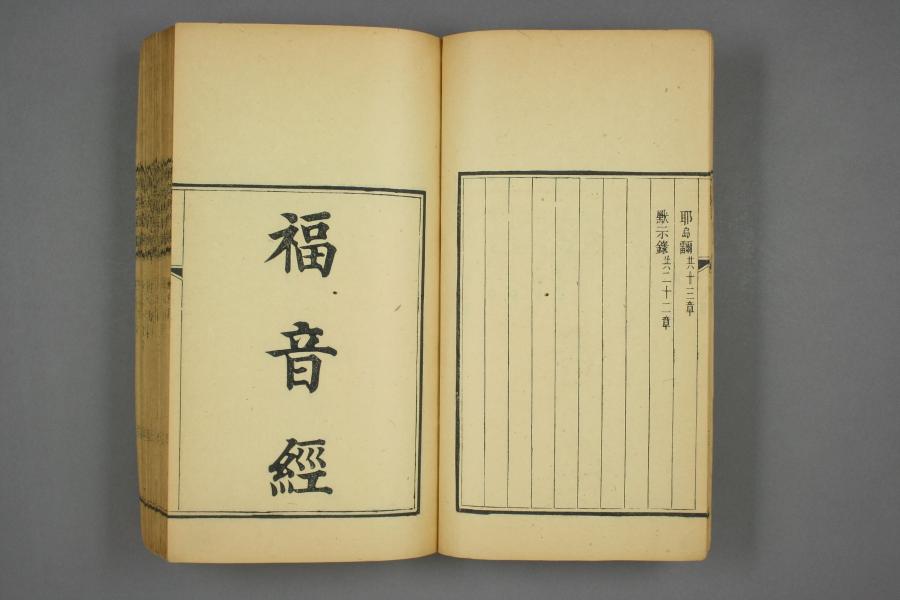 耶共十三章
默示錄共二十二章
福音經